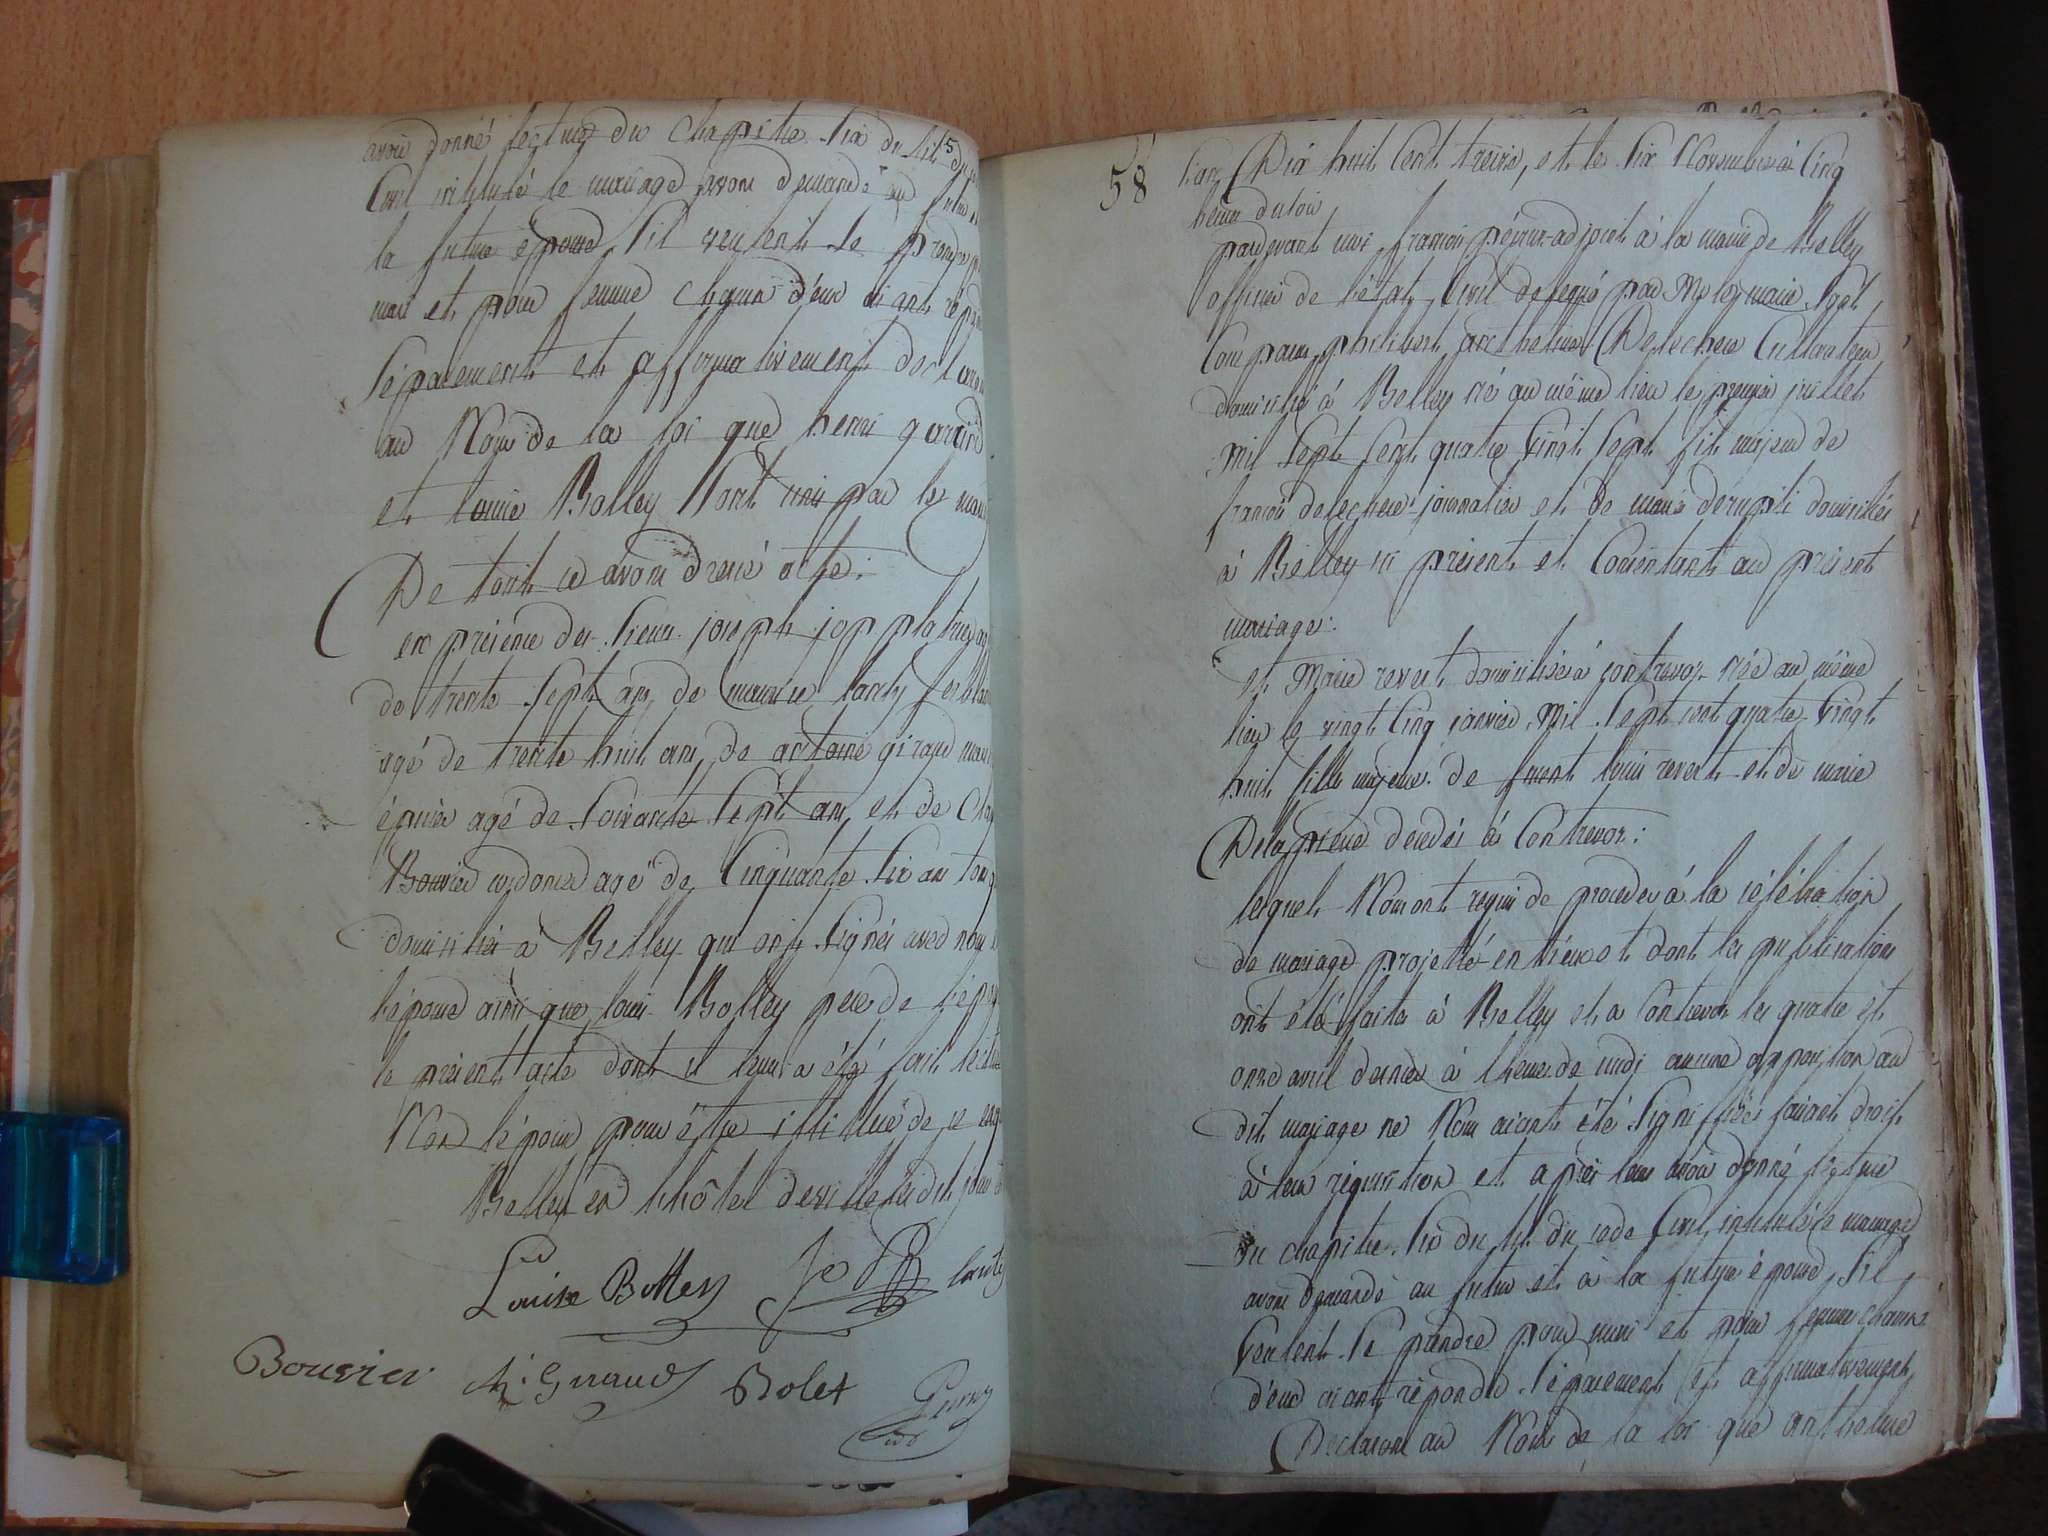 avoir donné lecture du chapitre six du tit 5 du
Civil intitulé le mariage avons demandé au futur
la future épouse s'il veulent se prendre
mari et pour femme chacun d'eux aiant répondu
séparement et affirmativement déclarons
au Nom de la loi que henri
et louise Bolley sont unis par le mari
De tout ce avons dressé acte
en présence des sieurs joseph jopp
de trente sept ans de maurice ferblan
agé de trente huit ans, de antoine giraud
épicier agé de soixante sept ans, et de
Bouvier cordonier agé de Cinquante six ans tous
domiciliés à Belley qui ont signés avec nous
l'épouse ainsi que louis Bolley pere de l'épou
le présent acte dont il leur a été fait lectu
Non l'époux pour être illitéré de ce enq
Belley en l'hôtel de ville les dit jour
Louise Bolley
Bouvier Giraud Bolet
58
l'an Dix huit Cent treize, et le six Novembre à Cinq
heure du soir
pardevant moi françois adjoint à la mairie de Belley
officier de l'état Civil delegué par Mr le maire sont
Comparus philibert anthelme Delechere Cultivateur
domicilié à Belley né au même lieu le premier juillet
mil sept cent quatre vingt sept fils majeur de
françois delechere journalier et de marie domiciliés
à Belley ici présents et Consentants au présent
mariage:
et Marie revert domiciliée à contrevoz née au même
lieu le vingt Cinq janvier mil sept cent quatre vingt
huit fille majeure de louis revert et de marie
decedés à Contrevoz:
lesquels Nous ont requis de proceder à la célébration
de mariage projetté entr'eux et dont les publications
ont été faites à Belley et a Contrevoz les quatre et
onze avril dernier à l'heure de midi aucune opposition au
dit mariage ne Nous aiant été signiffiée faisant droit
à leur réquisition et après leur avoir donné lecture
du chapitre six du tit du code Civil intitulé le mariage
avons demandé au futur et à la future épouse s'il
veulent se prendre pour mari et pour femme chacun
d'eux aiant répondu séparement et affirmativement
Déclarons au Nom de la loi que anthelme